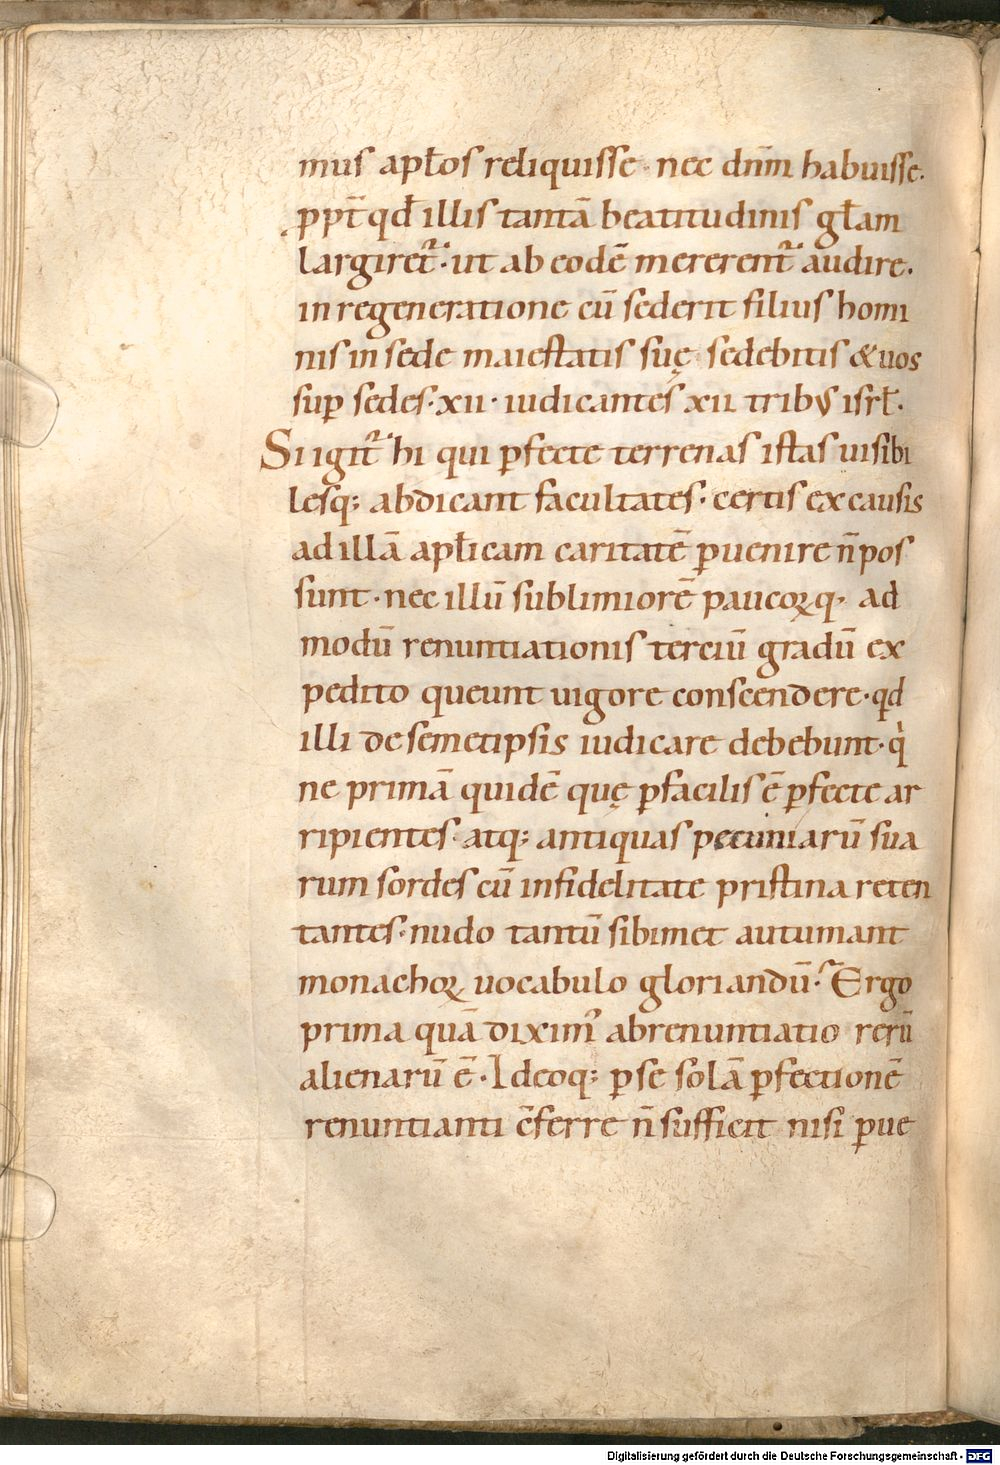 mus apłos reliquisse · nec dnm̄ habuisse.
ppt̄ qd̄ illis tantā beatitudinis gła̅m
largiret᷑ · ut ab eodē mererent᷑ audire.
in regeneratione cū sederit filius homi
nis in sede maiestatis suę · sedebitis & uos
sup̱ sedes · xii · iudicantes xii tribꝰ isrł.
Si igit᷑ hi qui ꝑfecte terrenas istas uisibi
lesq; abdicant facultates · certis ex causis
ad illā apłicam caritatē ꝑuenire n̄ pos
sunt · nec illū sublimiorē paucoꝝq; ad
modū renuntiationis terciū gradū ex
pedito queunt uigore conscendere · qd
illi de semetipsis iudicare debebunt · qi
ne primā quidē quę ꝑfacilis ē ꝑfecte ar
ripientes · atq; antiquas pecuniarū sua
rum sordes cū infidelitate pristina reten
tantes · nudo tantū sibimet autumant
monachoꝝ uocabulo gloriandū · Ergo
prima quā dixim᾽ abrenuntiatio rerū
alienarū ē · Ideoq; ꝑ se solā ꝑfectionē
renuntianti c̄ferre n̄ sufficit nisi ꝑue
Digitalisierung gefördert durch die Deutsche Forschungsgemeinschaft - DFG